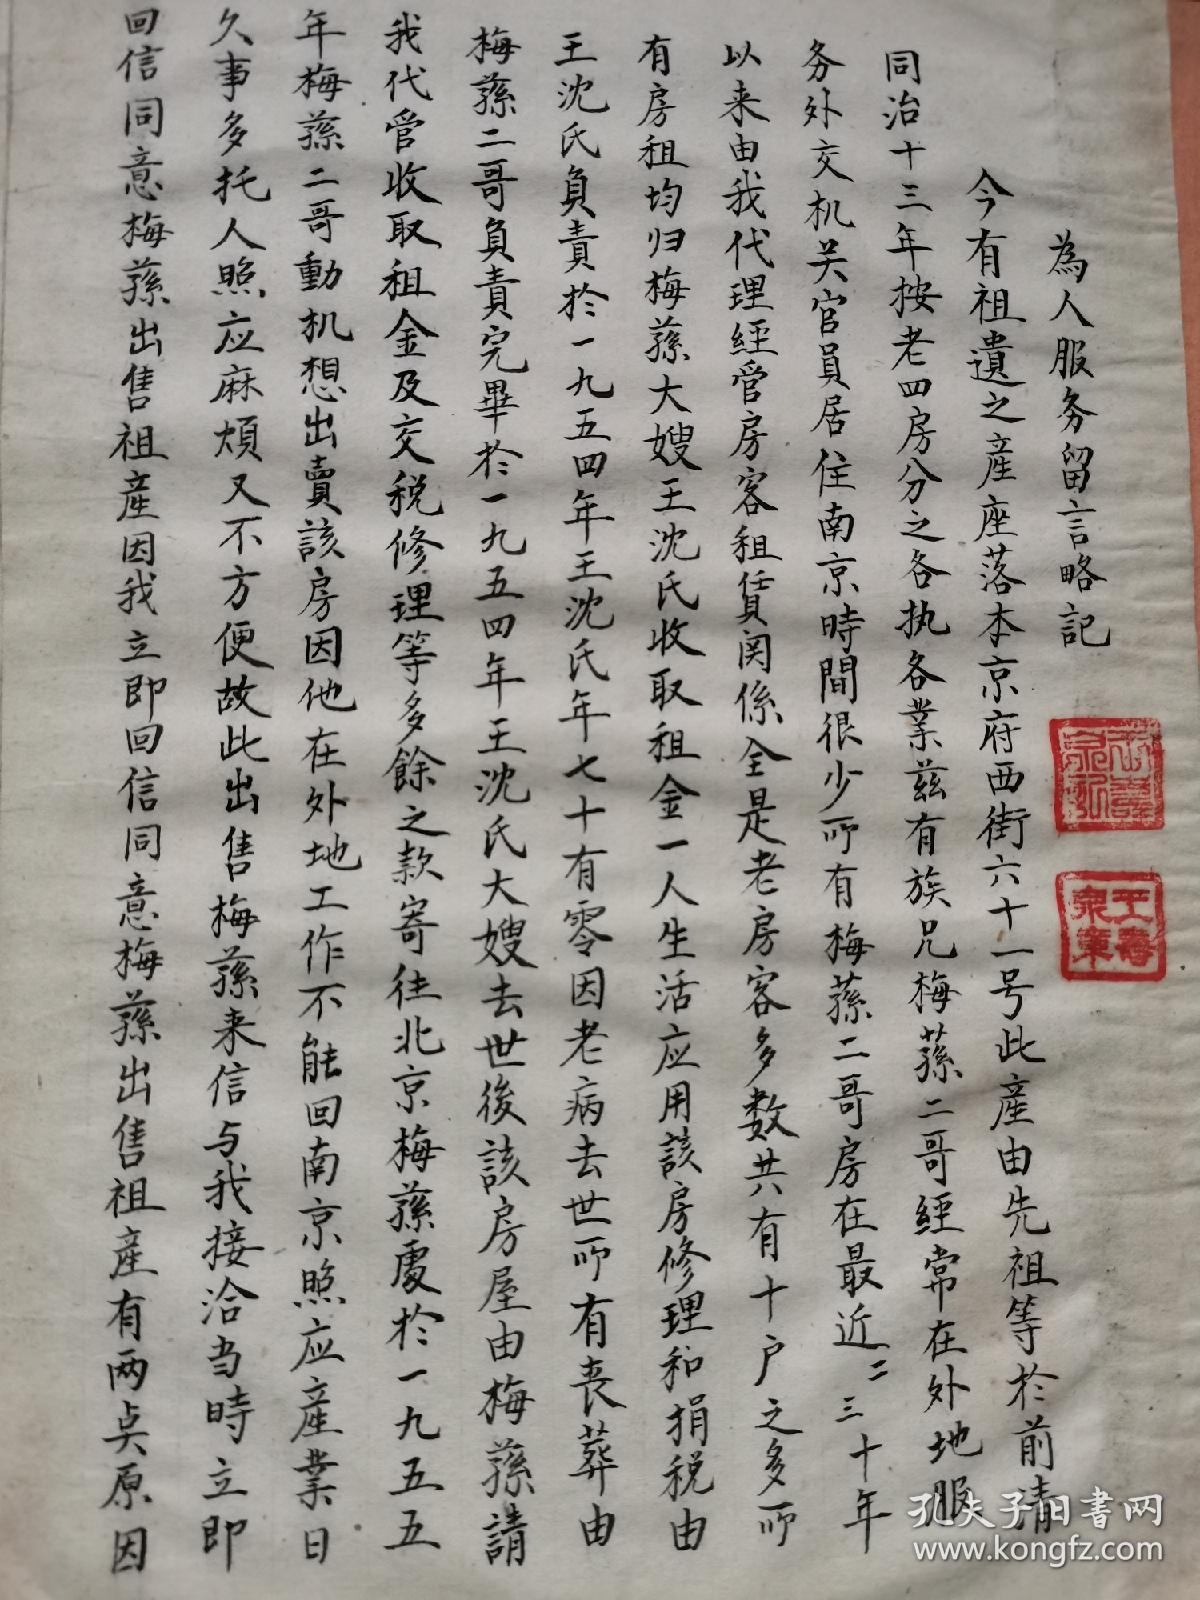 為人服务留言略記
今有祖遺之產座落本京府西街六十一号此產由先祖等於前清
同治十三年按老四房分之各执各業茲有族兄梅蓀二哥經常在外地服
务外交机关官員居住南京時間很少所有梅蓀二哥房在最近二三十年
以来由我代理經营房客租賃関係全是老房客多数共有十户之多所
有房租均归梅蓀大嫂王沈氏收取租金一人生活应用該房修理和捐税由
王沈氏負責於一九五四年王沈氏年七十有零因老病去世所有丧葬由
梅蓀二哥負責完畢於一九五四年王沈氏大嫂去世後該房屋由梅蓀請
我代管收取租金及交税修理等多餘之款寄往北京梅蓀處於一九五五
年梅蓀二哥動机想出賣該房因他在外地工作不能回南京照应產業日
久事多托人照应麻煩又不方便故此出售梅蓀来信与我接洽当時立即
回信同意梅蓀出售祖產因我立即回信同意梅蓀出售祖產有两点原因
王壽泉章
孔夫子旧书网
www.kongfz.com